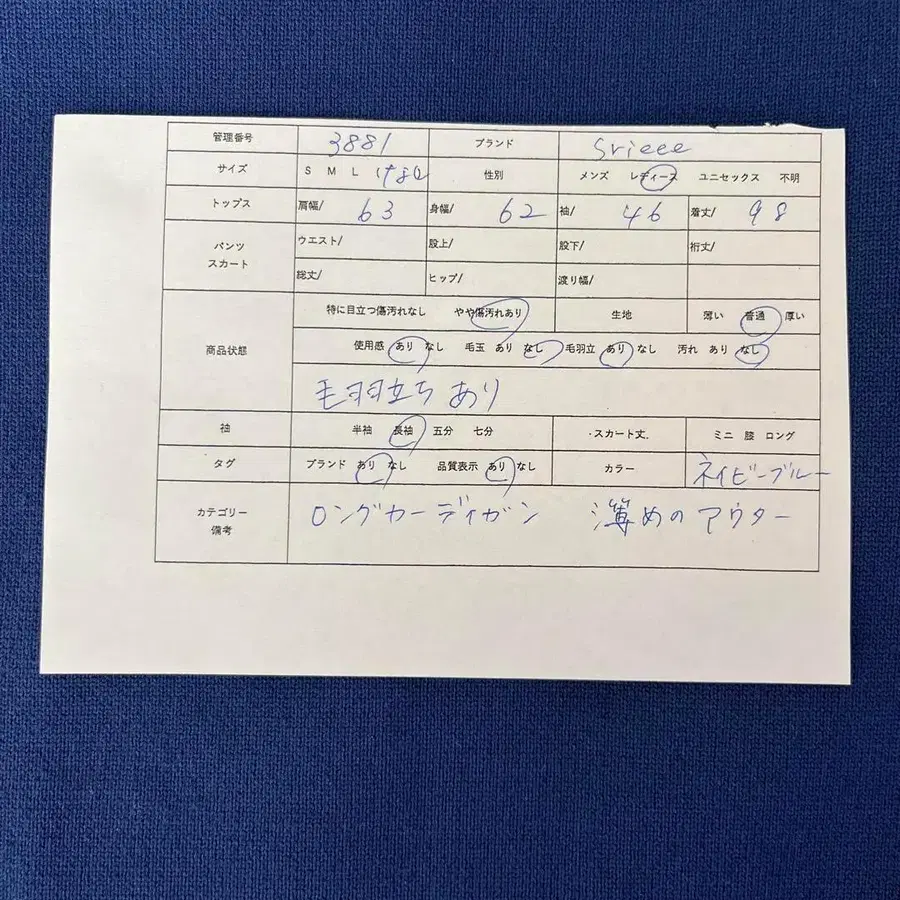 管理番号 3881 ブランド Srieee
サイズ S M L 性別 メンズ レディース ユニセックス 不明
トップス 肩幅/ 63 身幅/ 62 袖/ 46 着丈/ 98
パンツ スカート ウエスト/ 股上/ 股下/ 裄丈/
総丈/ ヒップ/ 渡り幅/
商品状態 特に目立つ傷汚れなし やや傷汚れあり 生地 薄い 普通 厚い
使用感 あり なし 毛玉 あり なし 毛羽立 あり なし 汚れ あり なし
毛羽立ち あり
袖 半袖 長袖 五分 七分 ・スカート丈. ミニ 膝 ロング
タグ ブランド あり なし 品質表示 あり なし カラー ネイビーブルー
カテゴリー 備考 ロングカーディガン 薄めのアウター